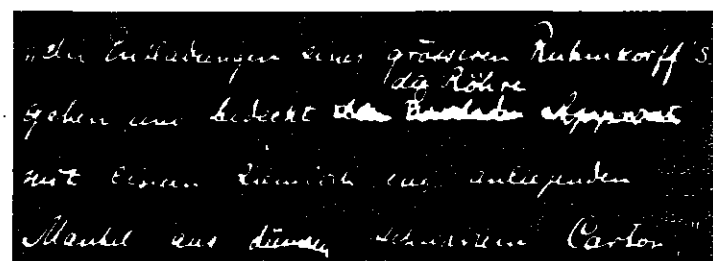 die Entladungen eines grösseren Ruhmkorff's
die Röhre
gehen und bedeckt den Apparat
mit einem ziemlich eng anliegenden
Mantel aus dünnem schwarzem Carton,